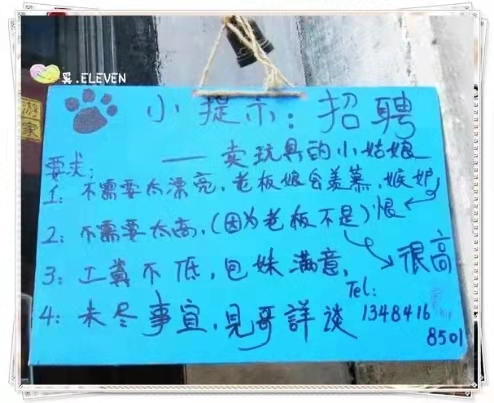 ELEVEN
小提示：招聘
—— 卖玩具的小姑娘
要求：
1：不需要太漂亮，老板娘会羡慕，嫉妒恨
2：不需要太高，（因为老板不是）很高
3：工 不低，包妹满意，
4：未尽事宜，见哥詳谈
Tel：
1348416
8501